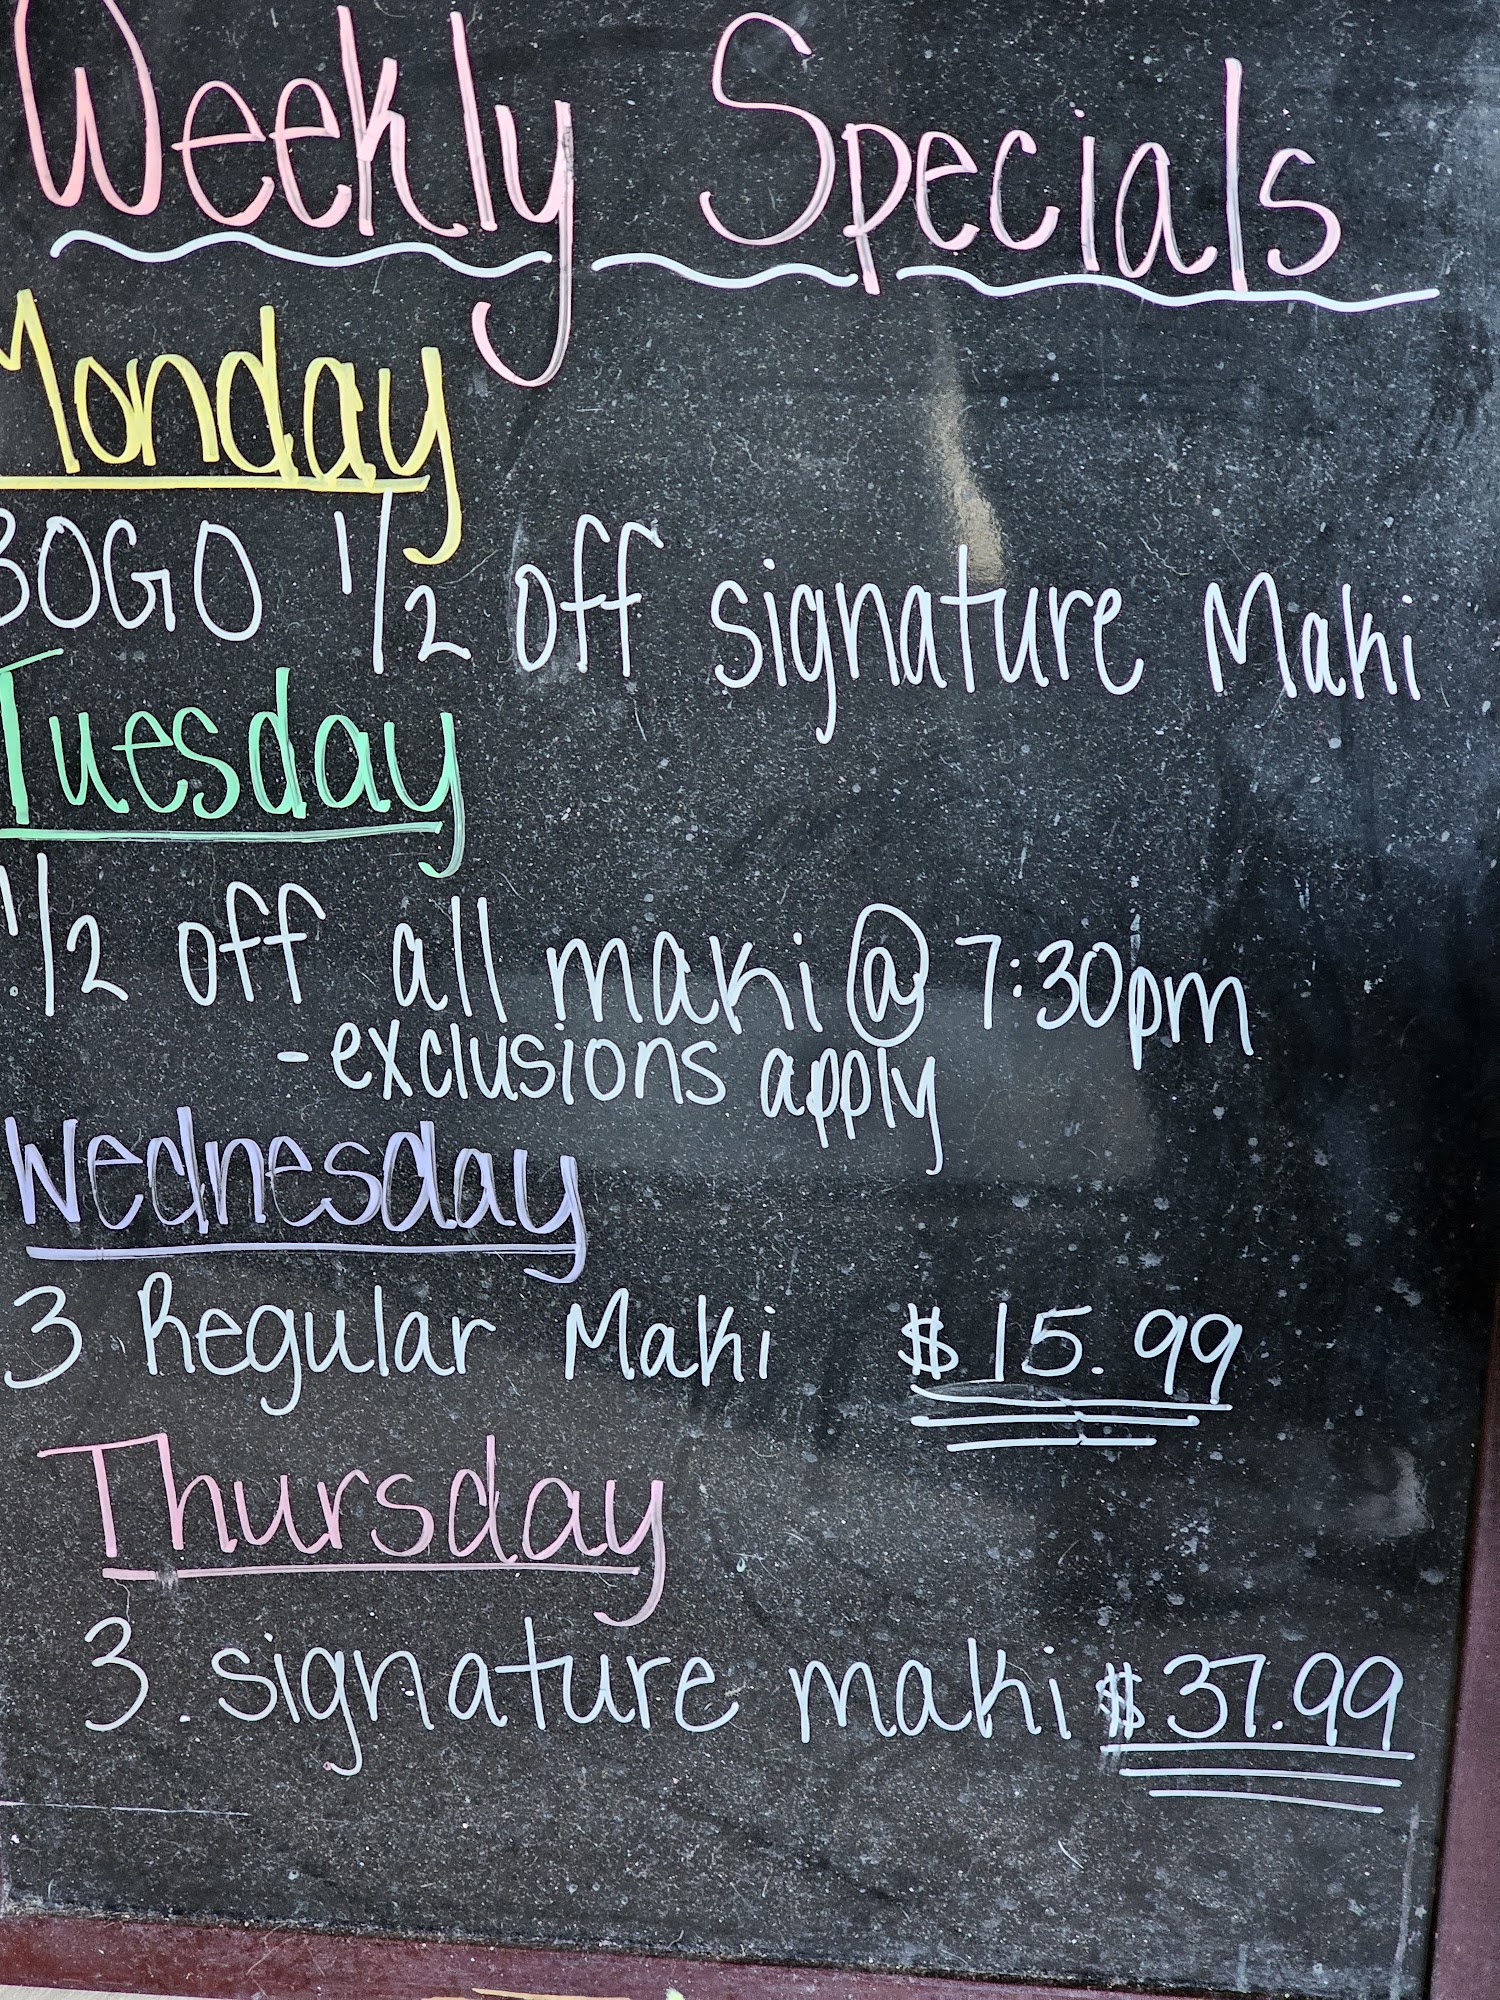 Weekly Specials
Monday
BOGO 1/2 off signature Maki
Tuesday
1/2 off all maki @ 7:30pm
- exclusions apply
Wednesday
3 Regular Maki $15.99
Thursday
3 signature maki $37.99